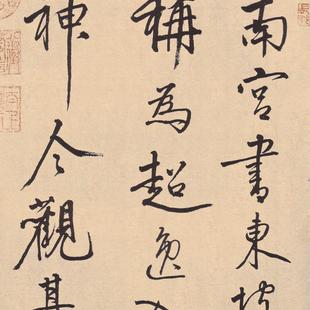 南宮書東坡
稱為超逸入
神今觀其